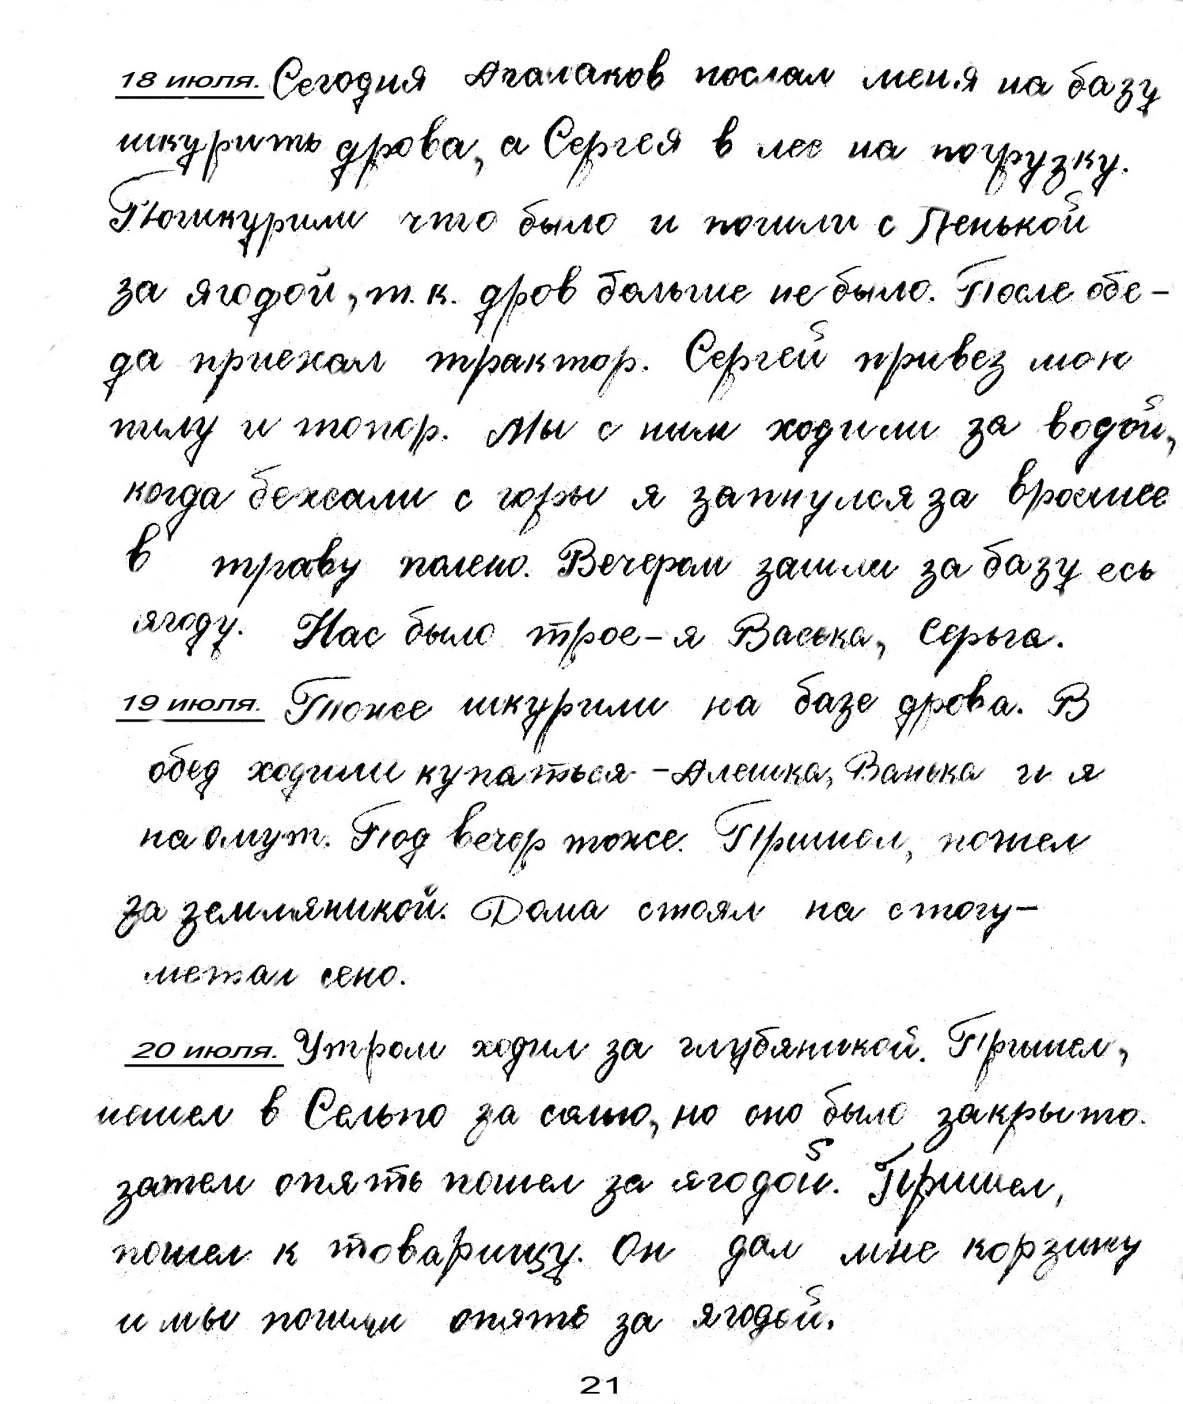 18 июля. Сегодня Агалаков послал меня на базу
шкурить дрова, а Сергея в лес на погрузку.
Пошкурили что было и пошли с Ленькой
за ягодой, т.к. дров больше не было. После обе-
да приехал трактор. Сергей привез мою
пилу и топор. Мы с ним ходили за водой,
когда бежали с горы я запнулся за вросшее
в траву полено. Вечером зашли за базу есь
ягоду. Нас было трое-я Васька, Серьга.
19 июля. Тоже шкурили на базе дрова. В
обед ходили купаться -Алешка, Ванька и я
на омут. Под вечер тоже. Пришел, пошел
за земляникой. Дома стоял на стогу-
метал сено.
20 июля. Утром ходил за глубяникой. Пришел,
пошел в Сельпо за солью, но оно было закрыто.
затем опять пошел за ягодой. Пришел,
пошел к товарищу. Он дал мне корзину
и мы пошли опять за ягодой.
21